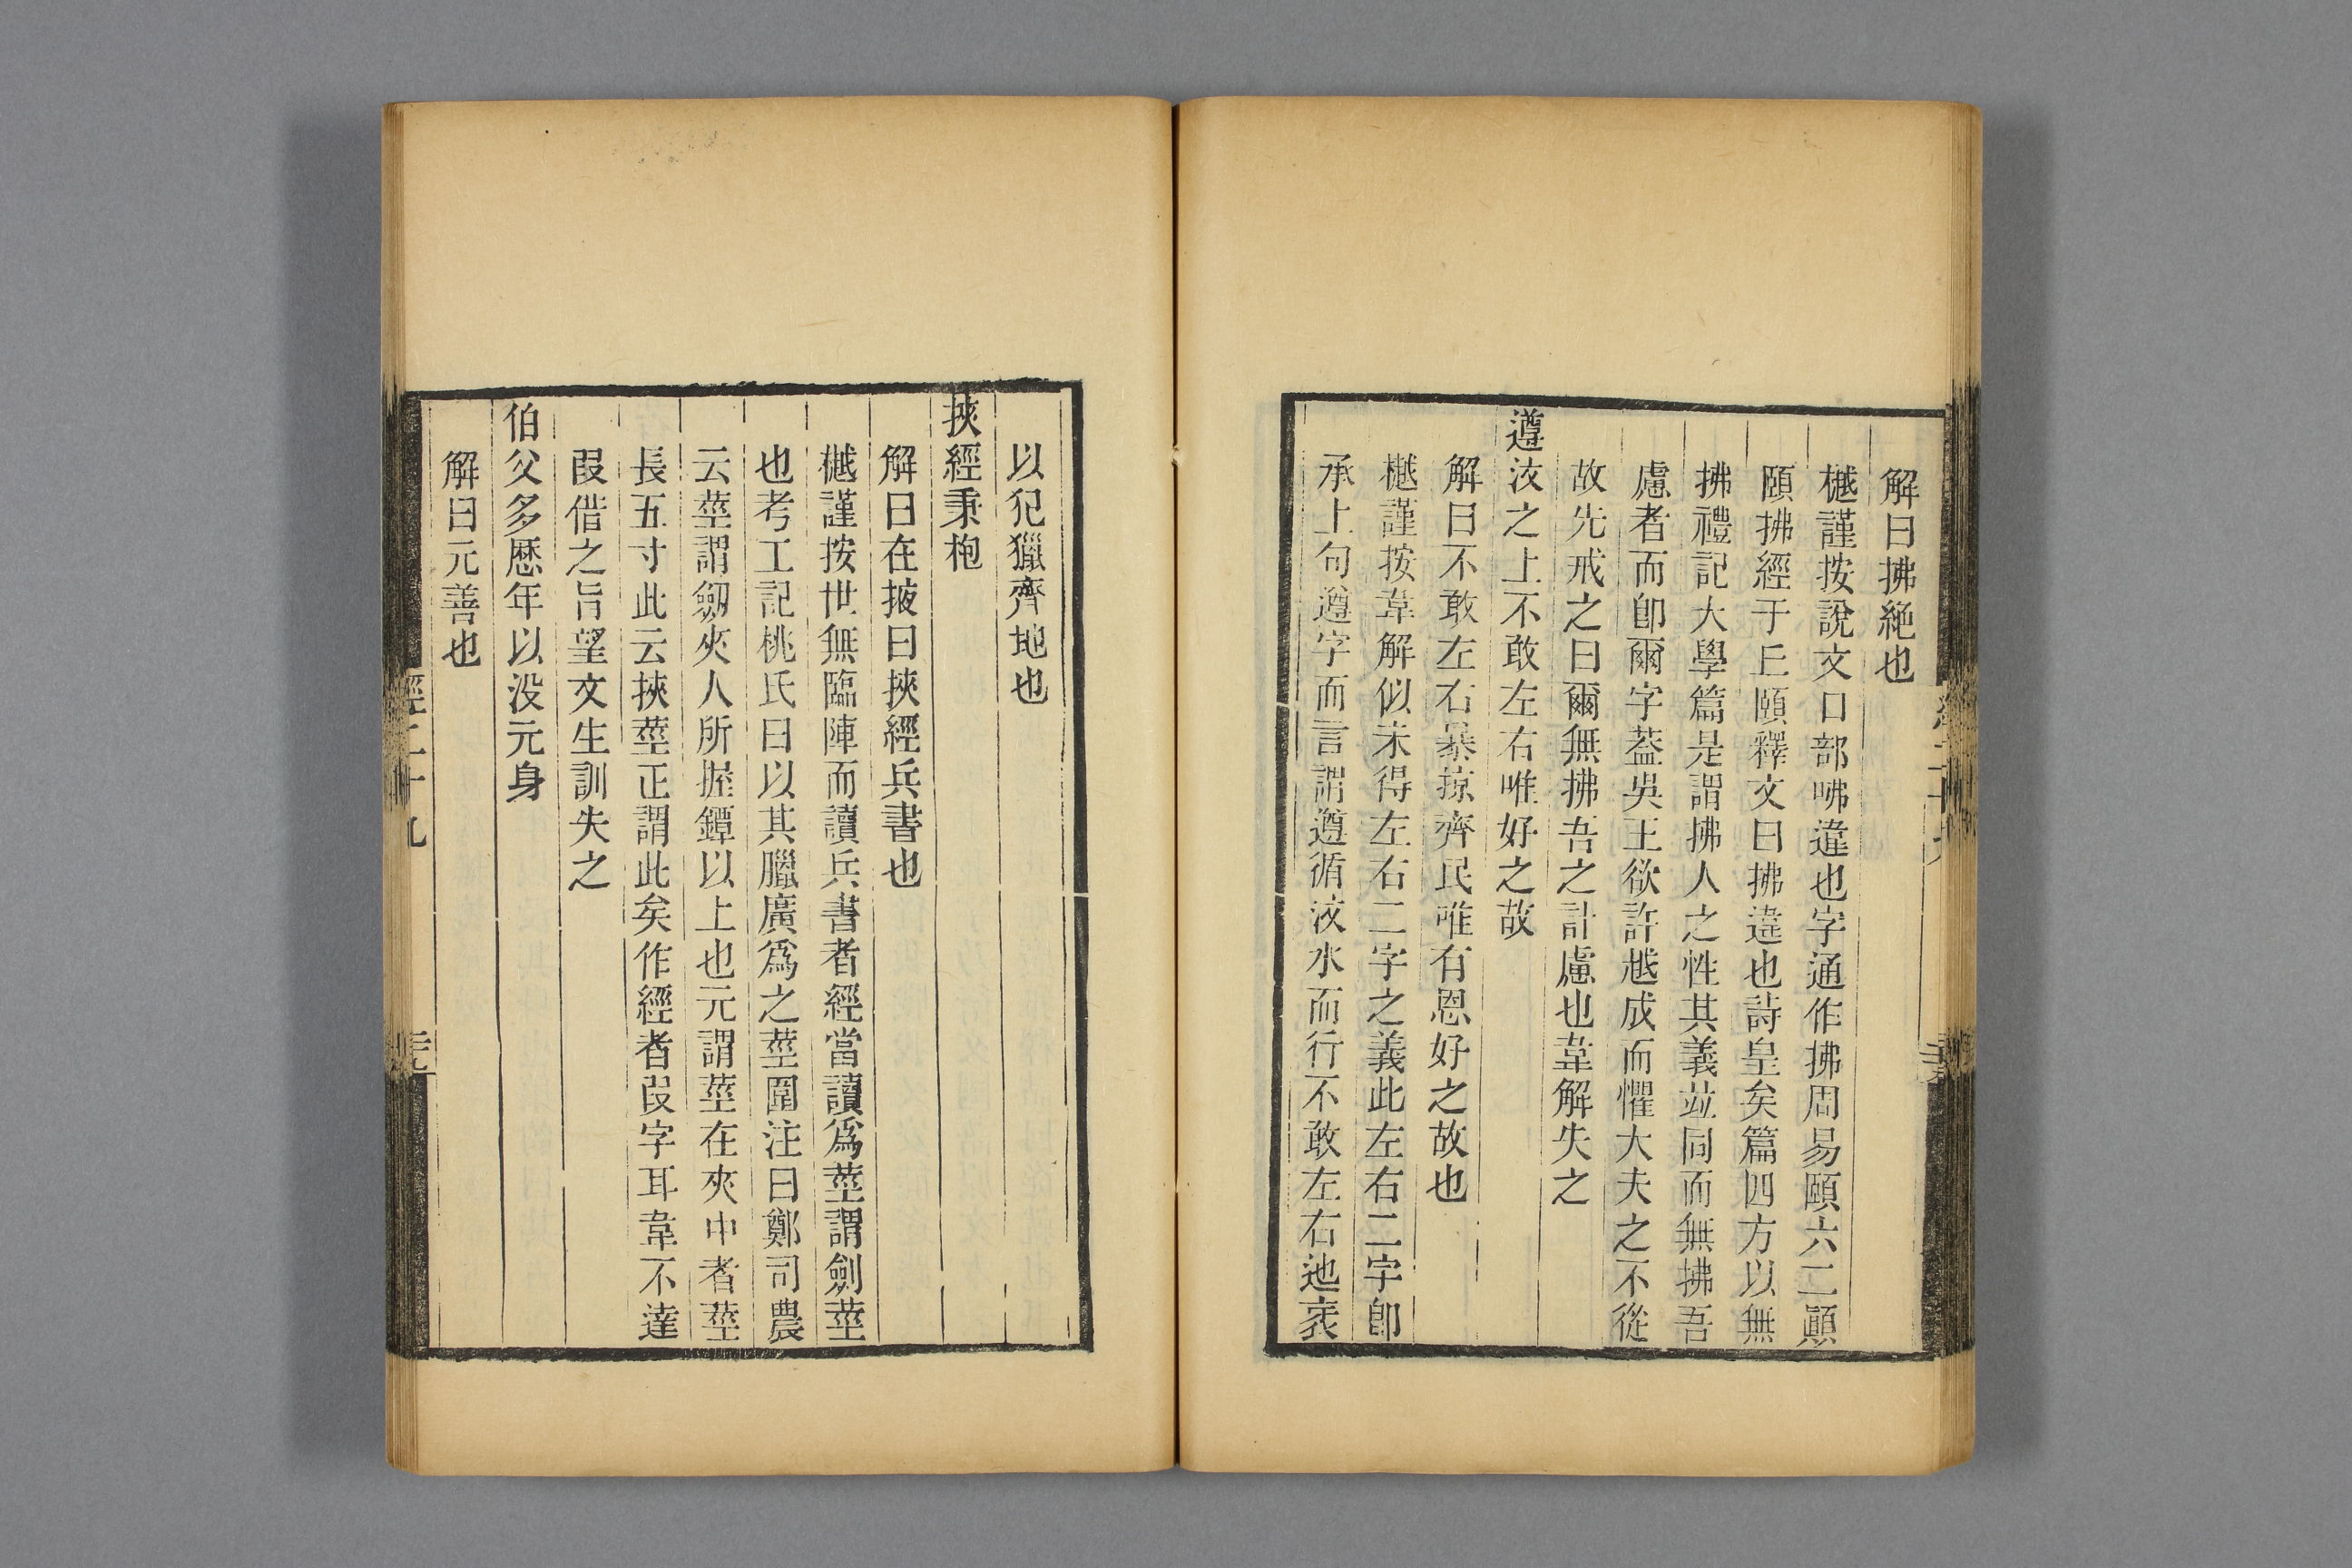 解曰拂絶也
樾謹按說文口部咈違也字通作拂周易頤六二顚
頤拂經于丘頤釋文曰拂違也詩皇矣篇四方以無
拂禮記大學篇是謂拂人之性其義竝同而無拂吾
慮者而卽爾字葢吳王欲許越成而懼大夫之不從
故先戒之曰爾無拂吾之計慮也韋解失之
遵汶之上不敢左右唯好之故
解曰不敢左右暴掠齊民唯有恩好之故也
樾謹按韋解似未得左右二字之義此左右二字卽
承上句遵字而言謂遵循汶水而行不敢左右迤衺
以犯獵齊地也
挾經秉枹
解曰在掖曰挾經兵書也
樾謹按世無臨陣而讀兵書者經當讀爲莖謂劍莖
也考工記桃氏曰以其臘廣爲之莖圍注曰鄭司農
云莖謂劒夾人所握鐔以上也元謂莖在夾中者莖
長五寸此云挾莖正謂此矣作經者叚字耳韋不達
叚借之旨望文生訓失之
伯父多厯年以没元身
解曰元善也
經二十九